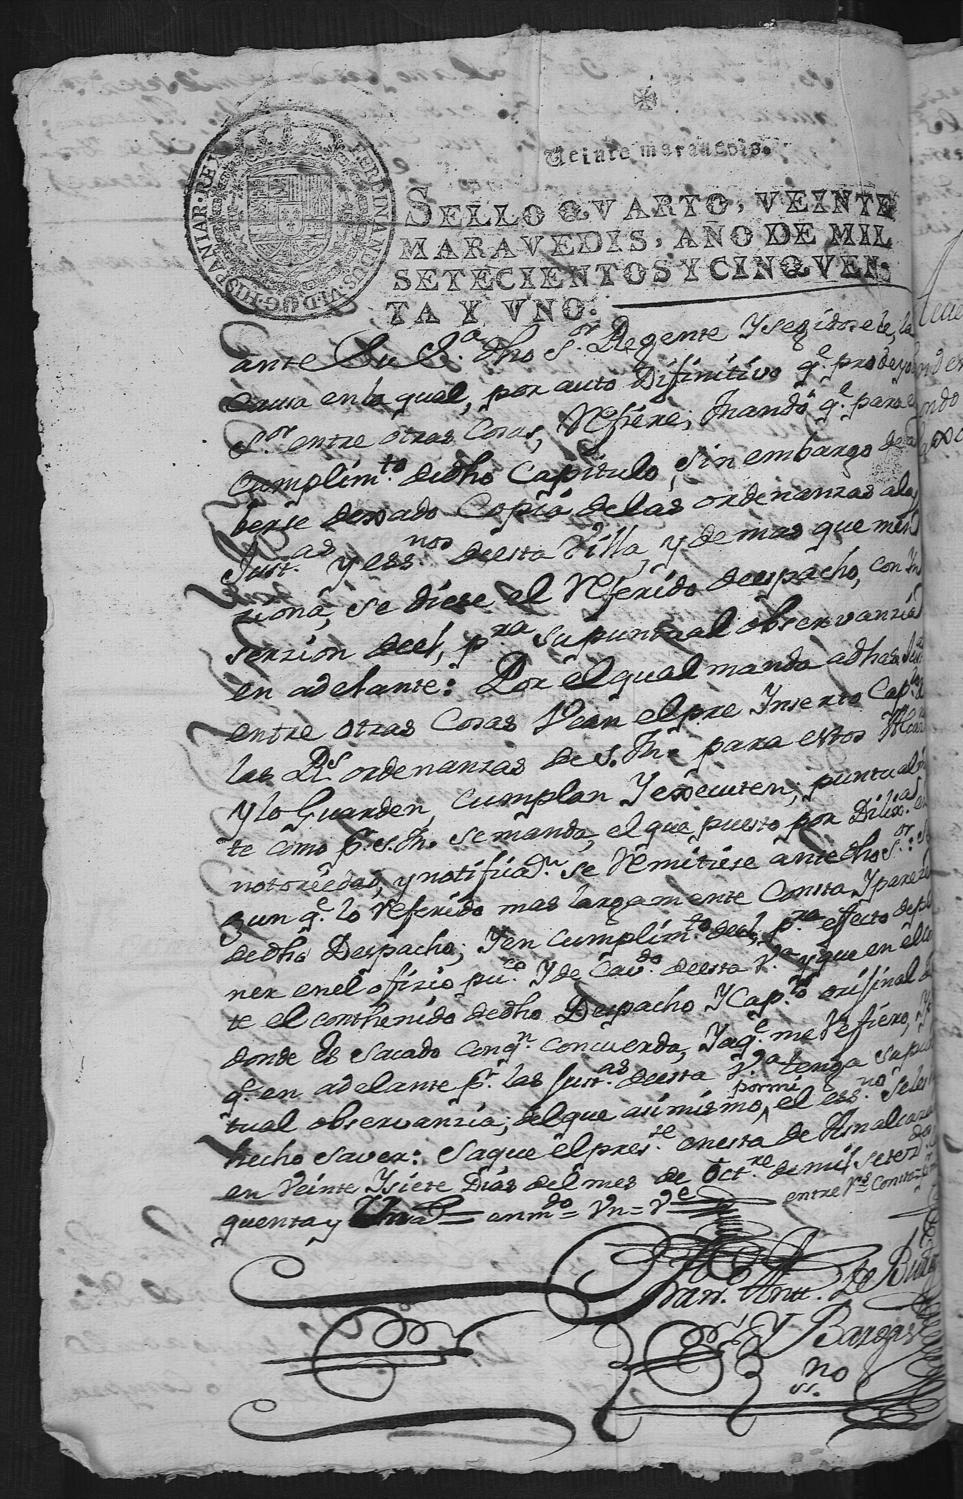 Veinte maravedis.
SELLO QVARTO, VEINTE
MARAVEDIS, AÑO DE MIL
SETECIENTOS Y CINQVEN-
TA Y VNO.
FERDINANDUS·VI·D·G·HISPANIAR·REX
ante Su S.ª dho S.or Regente Y seguidosele, la
Causa en la qual, por auto Difinitivo q.e
S.or entre otras Cosas, Refiere; Mandò q.e para el
Cumplim.to de dho Capitulo, sin embargo de a
berse dexado Copia de las ordenanzas a las
Just.as y ess.nos de esta Villa, y demas que men
ziona, se diese el Referido despacho, con Yn
serzion deel, p.ra su puntual observanzia
en adelante: Por el qual manda a dhas
entre otras Cosas Vean el pre Ynserto Cap.lo
las R.s ordenanzas de S. M. para estos
y lo Guarden, cumplan Y executen, puntualm
te como p.r S. M. se manda, el que puesto por Dilix.as
notoriedad, y notificaz.n se Remitiese ante dho S.or: se
gun q.e lo Referido mas largamente Consta Y pareze
de dho Despacho; Y en cumplim.to deel, p.ra effecto de po
ner en el ofizio pu.co Y de Cav.do de esta V.a y que en el
te el conthenido de dho Despacho Y Cap.lo orijinal de
donde es Sacado con q.n concuerda, Y a q.e me Refiero, Y
q.e en adelante p.r las Just.as de esta V.a tenga su pun
tual observanzia; del que asimismo, por mi el ess.no se les
hecho saver: Saque el pres.te en esta de
en Veinte Y siete Dias del mes de Oct.re de mil setez.os
quenta y Un a.s = enm.do = Vn = V.e = entre R.s
Fran.co Antt.o De
Y Bargas
ss.no